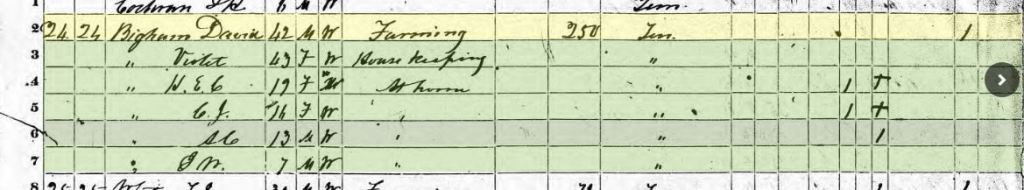 1 Cochran 6 M W Ten.
2 24 24 Bigham David 42 M W Farming 250 Ten. 1
3 " Violet 43 F W House Keeping "
4 " H. E. C 19 F W At home " 1 +
5 " C. J. 16 F W " " 1 +
6 " 13 M W " " 1
7 " J. W. 7 M W " "
8 25 25 M W Ten 1 1